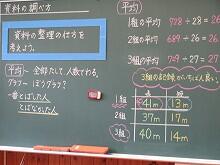 資料の調べ方
資料の整理の仕方を
考えよう。
平均→全部たして、人数でわる。
グラフ→ぼうグラフ?
一番とばした人
とばなかった人
平均
1組の平均 728÷28=26
2組の平均 689÷26=26.
3組の平均
3組の記録がいちばん良い。
1組 41m 13m
2組 37m 17m
3組 40m 14m